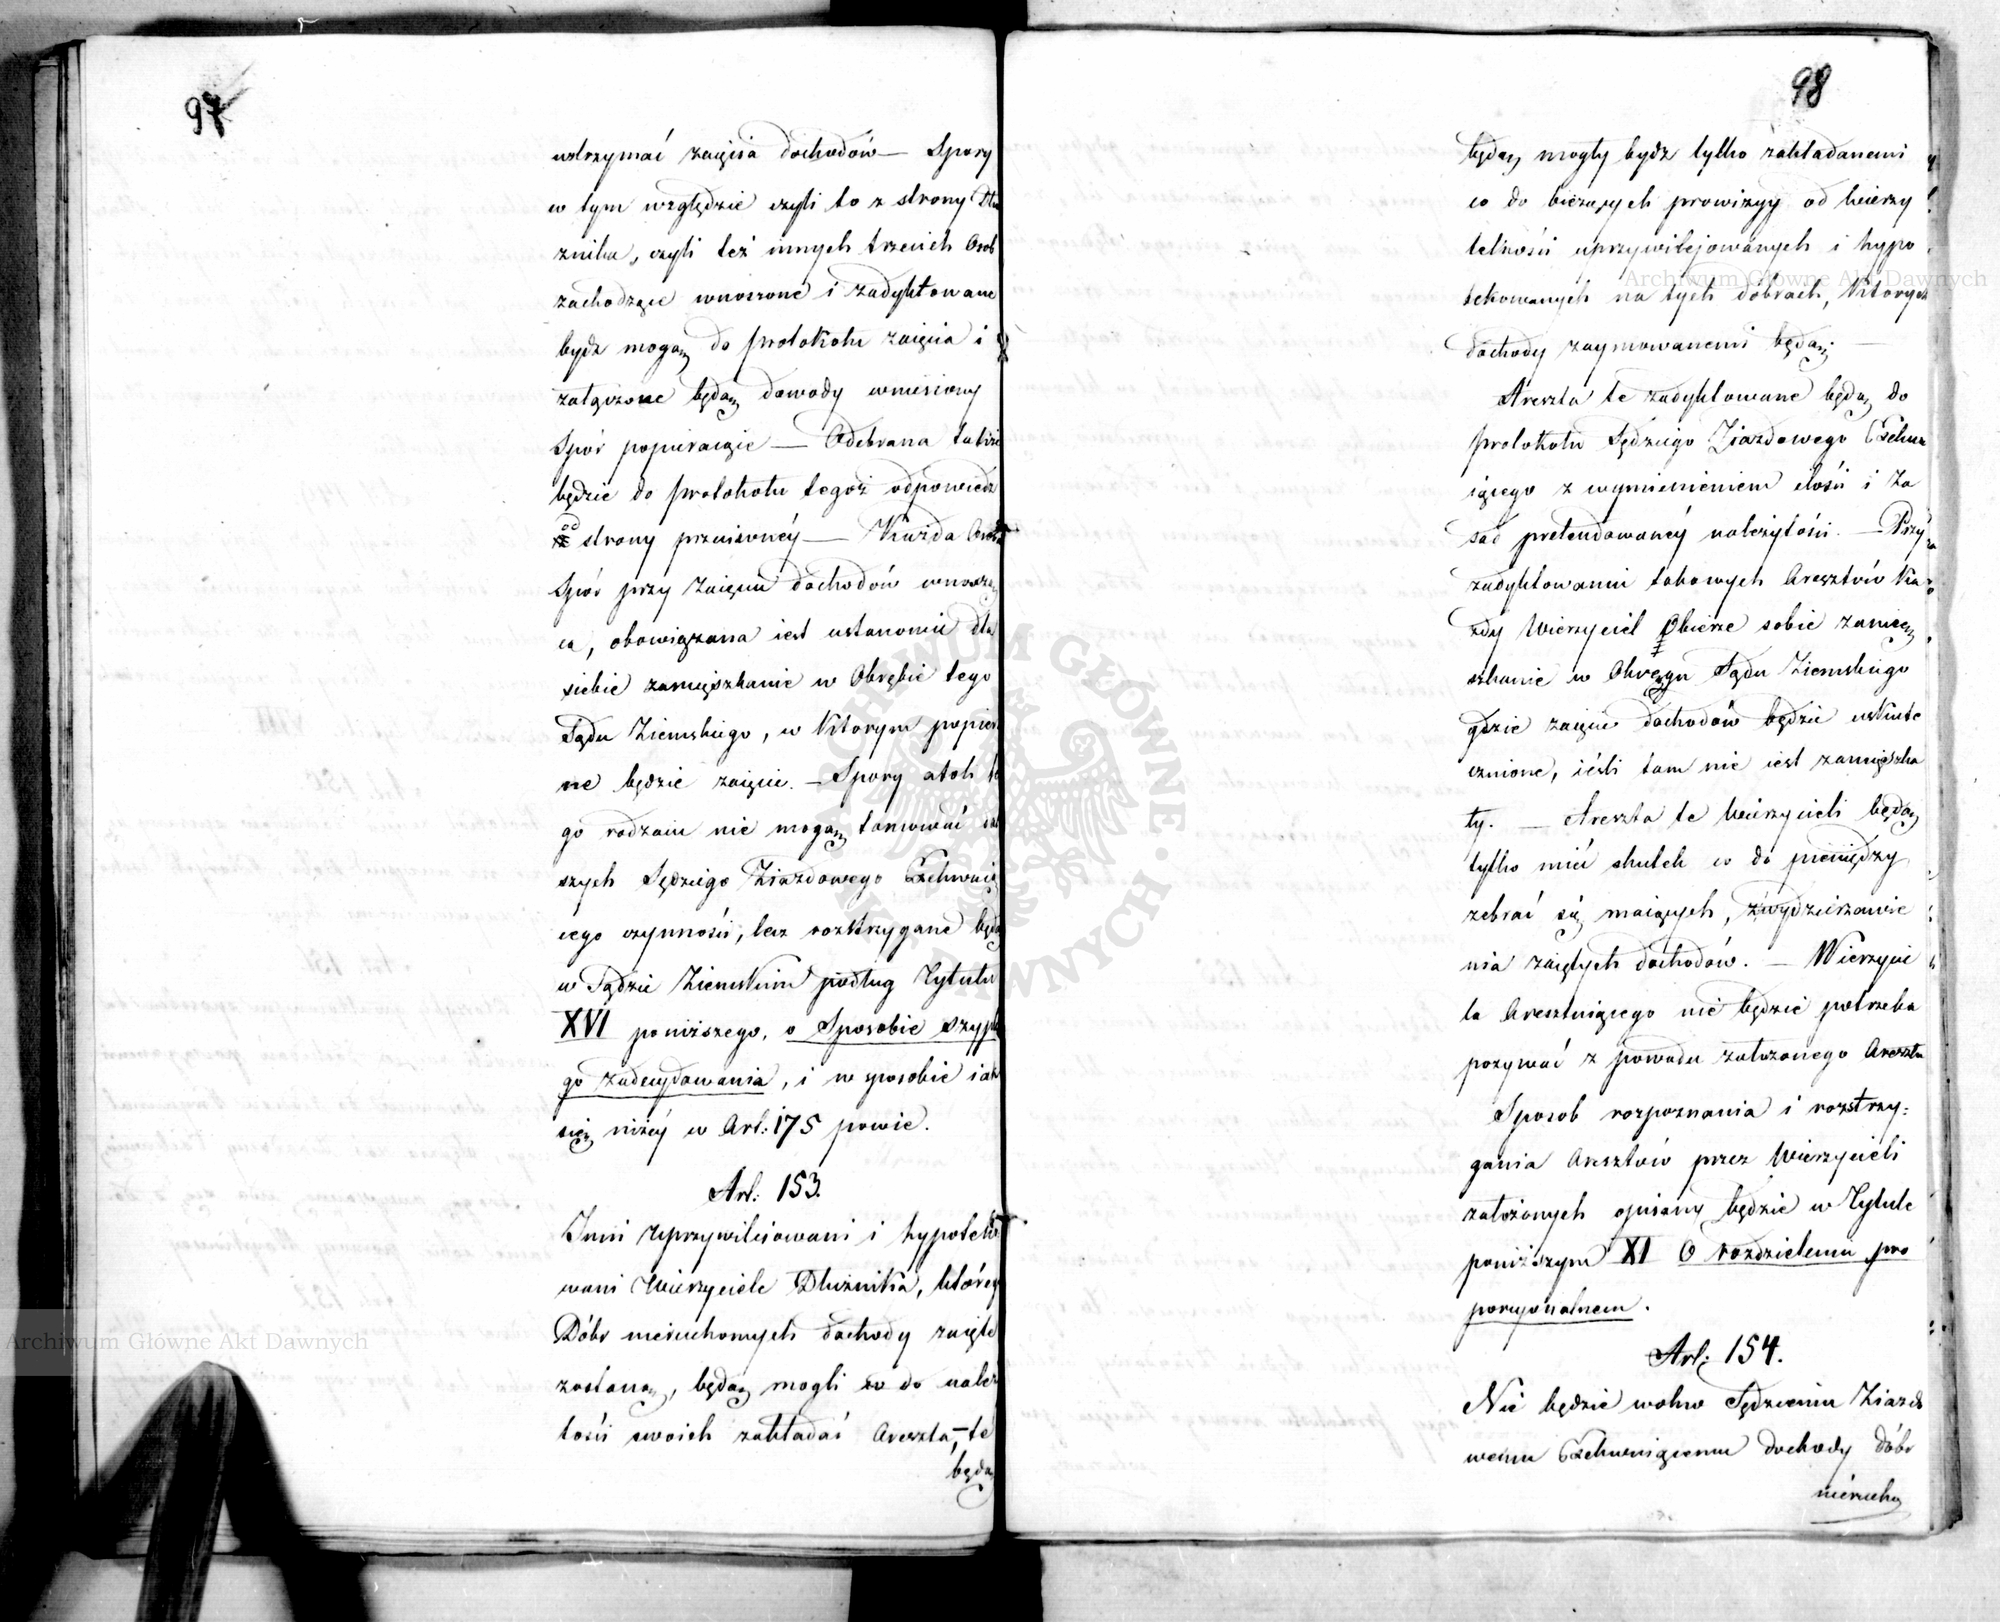 97
wstrzymać zaięcia dochodów — Spory
w tym względzie czyli to z strony Dłu
żnika, czyli też innych trzecich Osob
zachodzące wnoszone i zadyktowane
bydź mogą do protokołu zaięcia i
załączone będą dowody wniesiony
Spór popieraiące — Odebrana także
będzie do protokołu tegoż odpowiedź
od strony przeciwnéy — Każda Osoba
Spór przy zaięciu dochodów wnosząca
ca, obowiązana iest ustanowić dla
siebie zamięszkanie w Obrębie tego
Sądu Ziemskiego, w Którym popiera
ne będzie zaięcie. — Spory atoli te
go rodzaiu nie mogą tamować dal
szych Sędziego Ziazdowego Exekwuią
cego czynności, lecz rozstrzygane będą
w Sądzie Ziemskim podług Tytułu
XVI poniższego, o Sposobie szypkie
go zadecydowania, i w sposobie iak
się niżéy w Art: 175 powie.
Art: 153.
Inni Uprzywileiowani i hypoteko
wani Wierzyciele Dłużnika, którego
Dóbr nieruchomych dochody zaięte
zostaną, będą mogli co do należy
tości swoich zakładać Areszta, — te
będą
98
będą mogły bydź tylko zakładanemi
co do bieżących prowizyy od wierzy
telności uprzywilejowanych i hypo
tekowanych na tych dobrach, Których
dochody zaymowanemi będą. —
Areszta te zadyktowane będą do
protokołu Sędziego Ziazdowego Exekwu
iącego z wymienieniem ilości i Za
sad pretendowanéy należytości. — Przy
zadyktowaniu takowych Aresztów Ka
żdy Wierzyciel Obierze sobie zamię
szkanie w Okręgu Sądu Ziemskiego
gdzie zaięcie dochodów będzie uskute
cznione, ieśli tam nie iest zamięszka
ły. — Areszta te Wierzycieli będą
tylko mieć skutek co do pieniędzy
zebrać się maiących, z wydzierzawie
nia zaiętych dochodów. — Wierzycie
la Aresztuiącego nie będzie potrzeba
pozywać z powodu założonego Aresztu
Sposob rozpoznania i rozstrzy:
gania Aresztów przez Wierzycieli
założonych opisany będzie w Tytule
poniższym XI O rozdzieleniu pro
porcyonalnem.
Art: 154.
Nie będzie wolno Sędziemu Ziazdo
wemu Exekwuiącemu dochody dóbr
nierucho
Archiwum Główne Akt Dawnych
Archiwum Główne Akt Dawnych
ARCHIWUM GŁÓWNE · AKT DAWNYCH ·